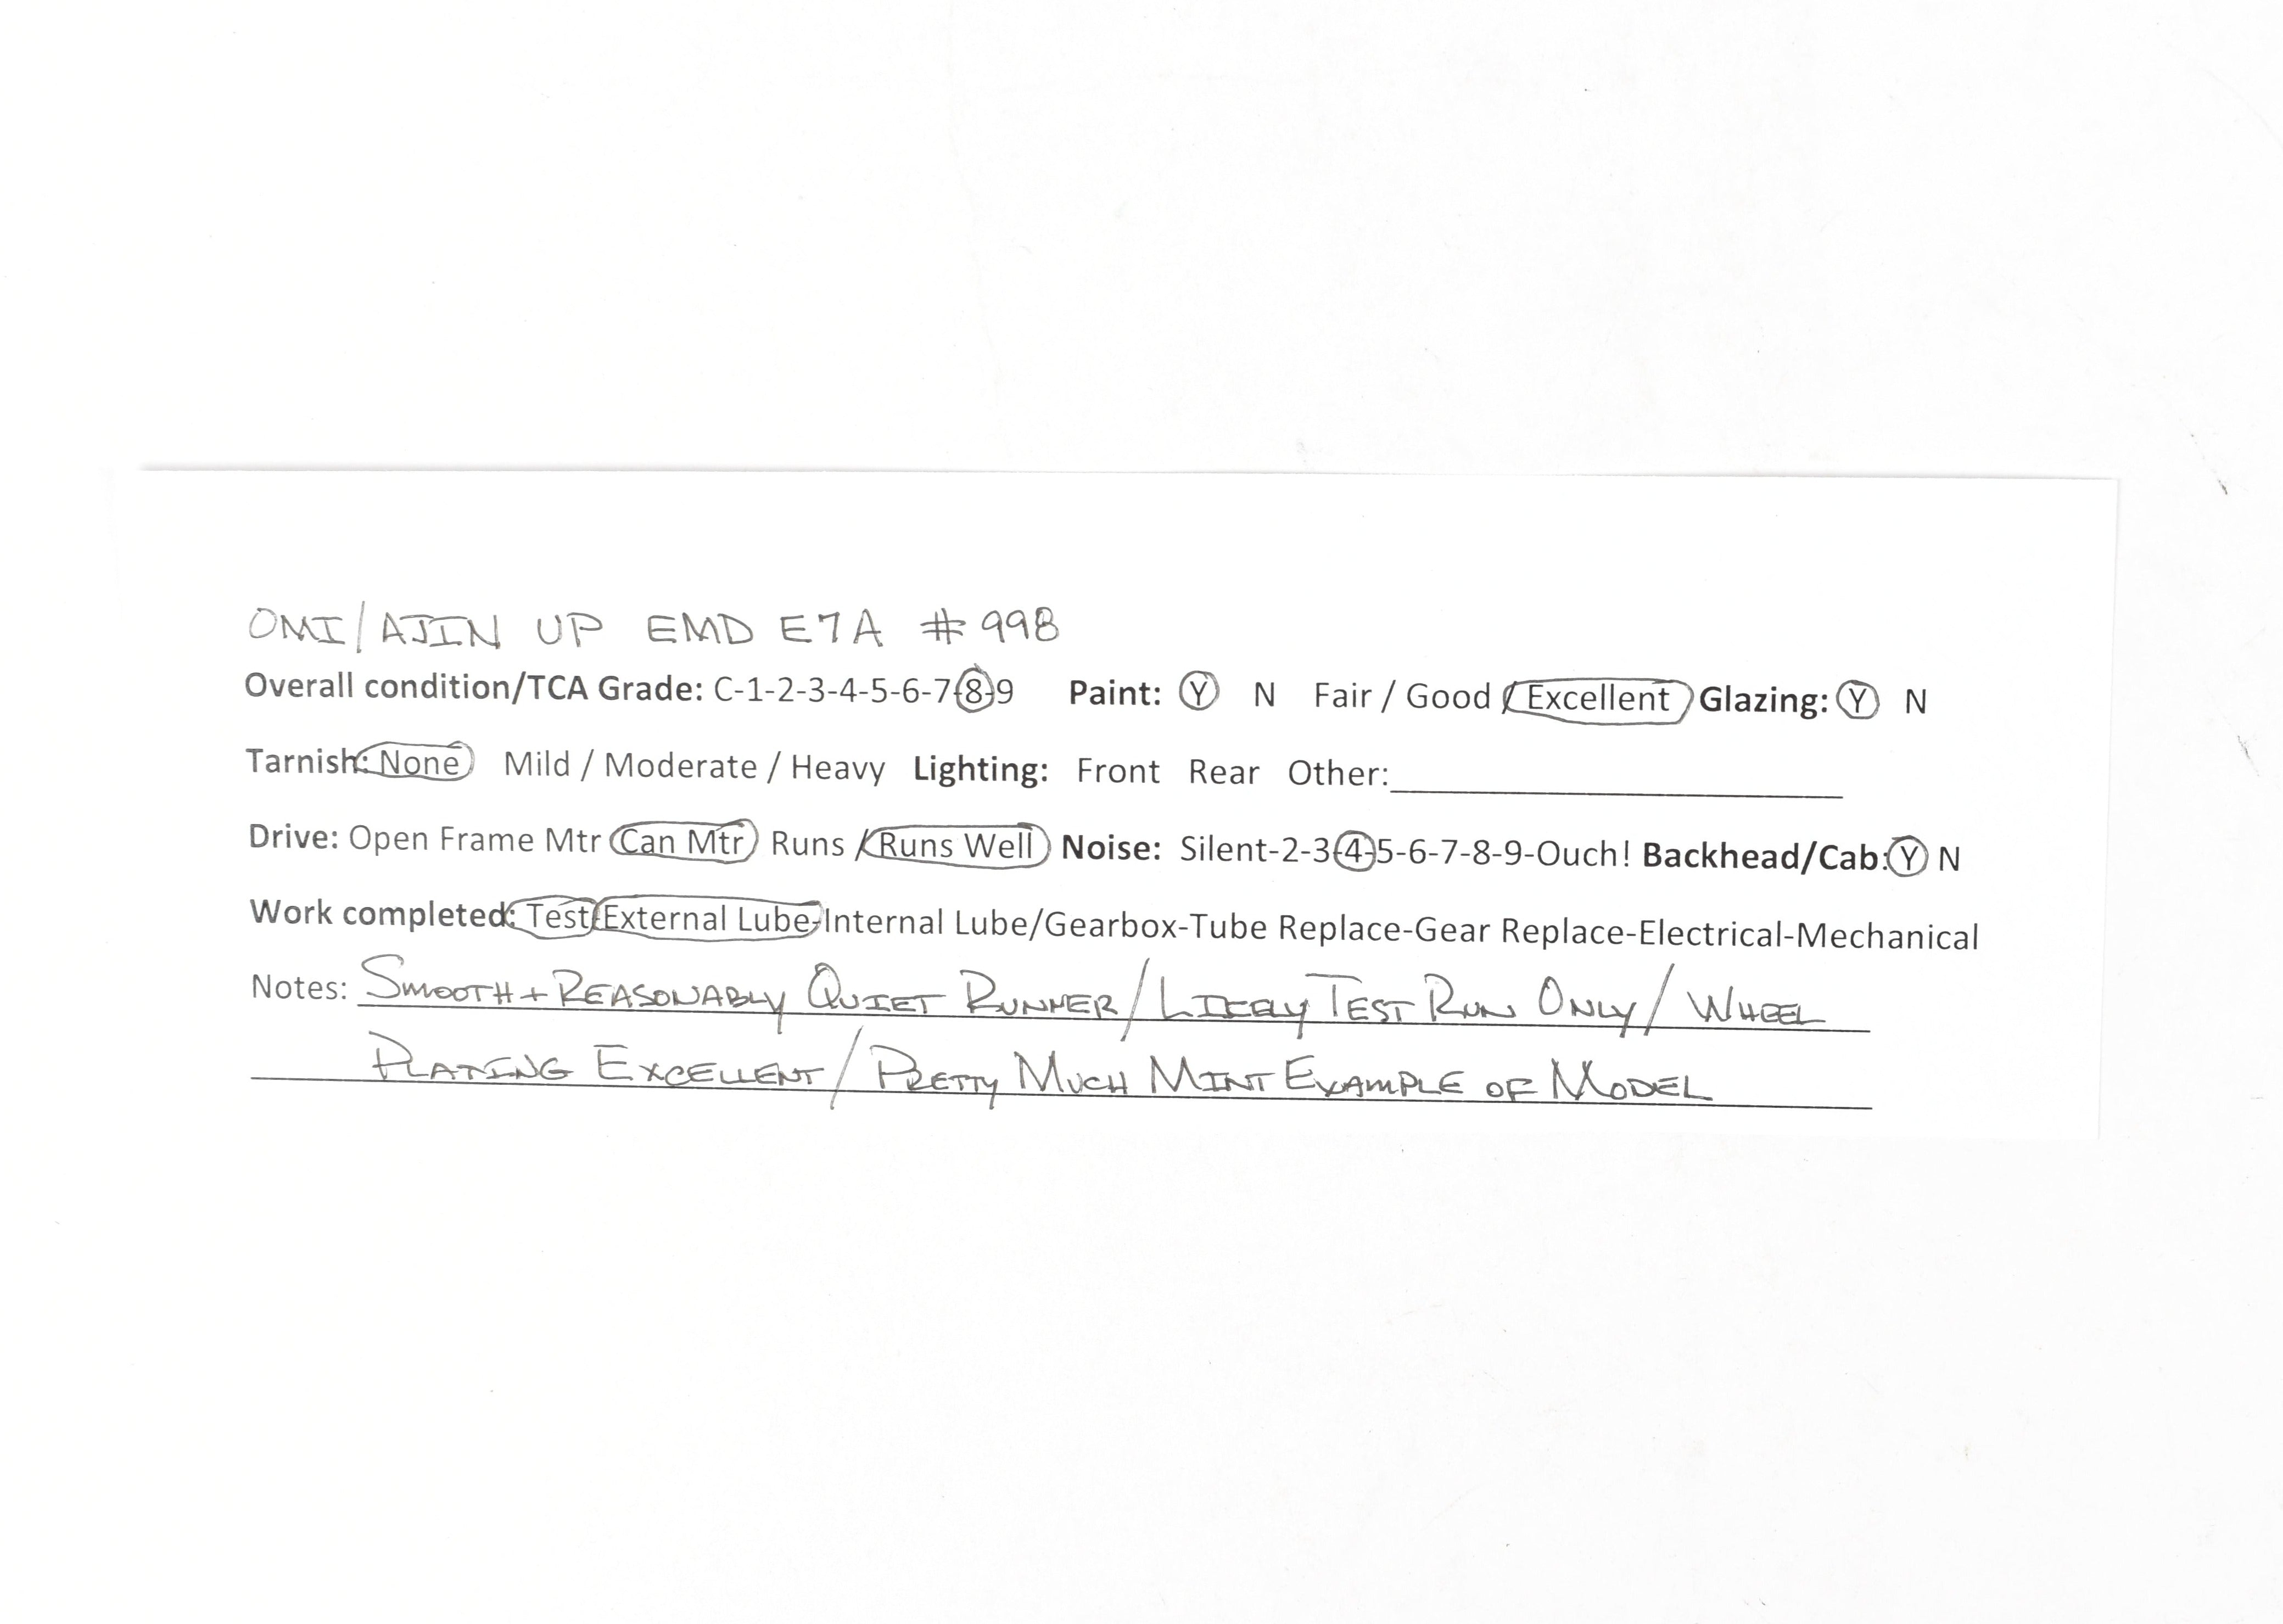 OMI/AJIN UP EMD E7A #998
Overall condition/TCA Grade: C-1-2-3-4-5-6-7-8-9 Paint: Y N Fair / Good / Excellent Glazing: Y N
Tarnish: None Mild / Moderate / Heavy Lighting: Front Rear Other:
Drive: Open Frame Mtr Can Mtr Runs / Runs Well Noise: Silent-2-3-4-5-6-7-8-9-Ouch! Backhead/Cab: Y N
Work completed: Test-External Lube-Internal Lube/Gearbox-Tube Replace-Gear Replace-Electrical-Mechanical
Notes: SMOOTH + REASONABLY QUIET RUNNER / LIKELY TEST RUN ONLY / WHEEL
PLATING EXCELLENT / PRETTY MUCH MINT EXAMPLE OF MODEL